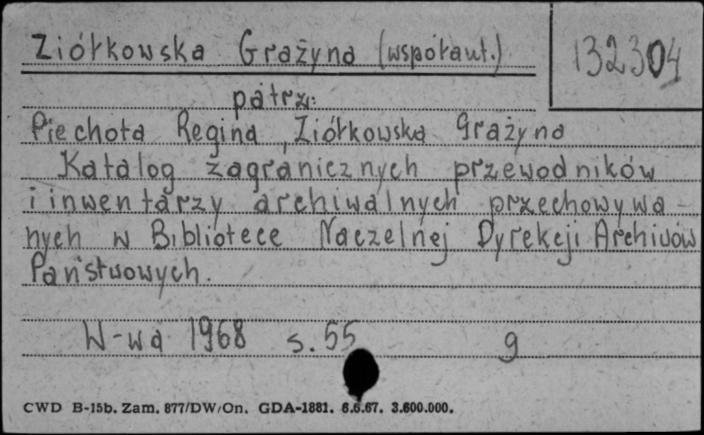 Ziółkowska Grażyna (współaut.)
132304
patrz:
Piechota Regina, Ziółkowska Grażyna
Katalog zagranicznych przewodników
i inwentarzy archiwalnych przechowywa-
nych w Bibliotece Naczelnej Dyrekcji Archiwów
Państwowych.
W-wa 1968 s. 55 g
CWD B-15b. Zam. 877/DW/On. GDA-1881. 6.6.67. 3.600.000.